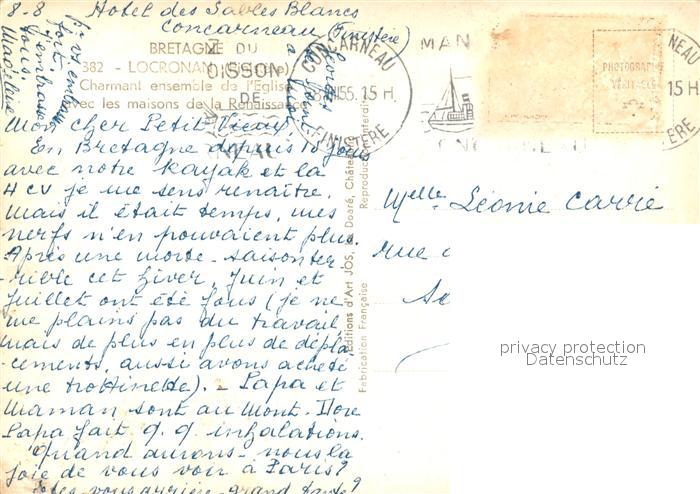 8-8 Hotel des Sables Blancs
Concarneau (Finistère)
BRETAGNE DU
382 - LOCRONAN
Charmant ensemble de l'Eglise
avec les maisons de la Renaissance
Mon cher Petit Vieux
En Bretagne depuis 18 jours
avec notre Kayak et la
4 cv je me sens renaître.
Mais il était temps, mes
nerfs n'en pouvaient plus.
Après une morte-saison ter-
-rible cet hiver, Juin et
Juillet ont été fous (je ne
me plains pas du travail
mais de plus en plus de dépla-
cements, aussi avons acheté
une trottinette). - Papa et
Maman sont au Mont. Dore
Papa fait q.q. inhalations.
Quand aurons-nous la
joie de vous voir à Paris?
êtes-vous arrière-grand tante?
fort,
t'embrasse
tous.
Madeleine
CONCARNEAU
55. 15 H
FINISTERE
MAN
NEAU
15 H
ERE
PHOTOGRAPHIE
VERITABLE
Editions d'Art JOS, Le Doaré, Châteaulin
Reproduction interdite
Fabrication Française
Melle Léonie Carrié
rue
privacy protection
Datenschutz